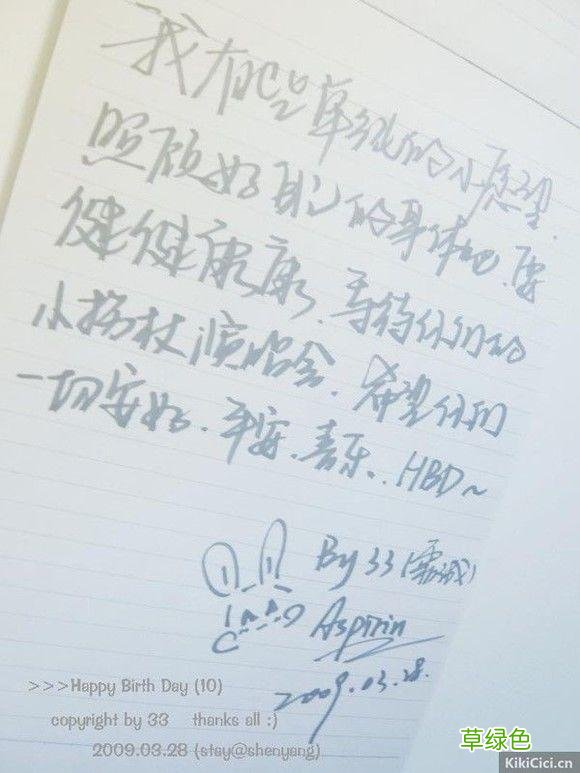 我有些草绿的小愿望.
照顾好自己的身体也.要
健健康康.等待你们的
小拐杖演唱会.希望你们
一切安好.平安.喜乐..HBD~
By 33 (
Aspirin
2009.03.28.
>>>Happy Birth Day (10)
copyright by 33 thanks all :)
2009.03.28 (stay@shenyang)
草绿色
KikiCici.cn